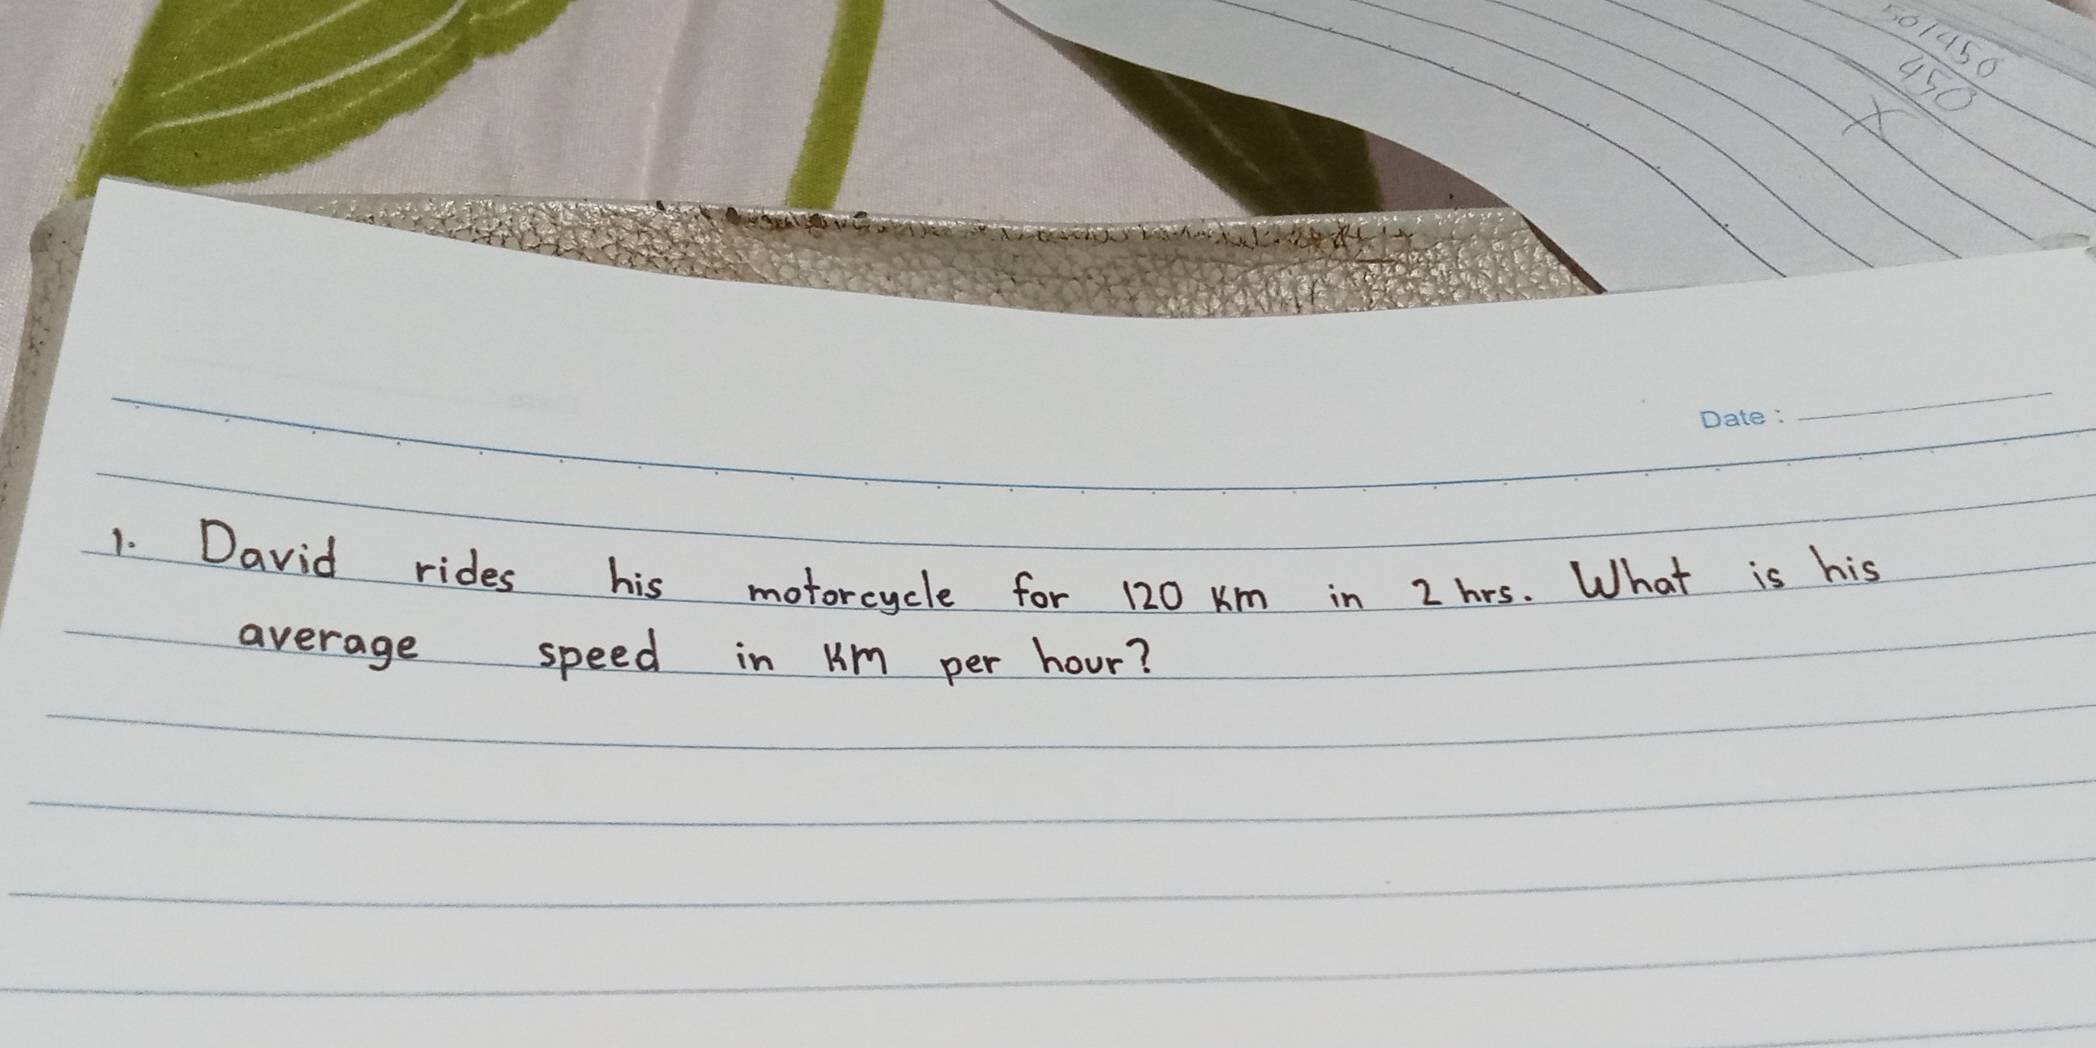 450
Date :
1. David rides his motorcycle for 120 km in 2 hrs. What is his
average speed in km per hour?